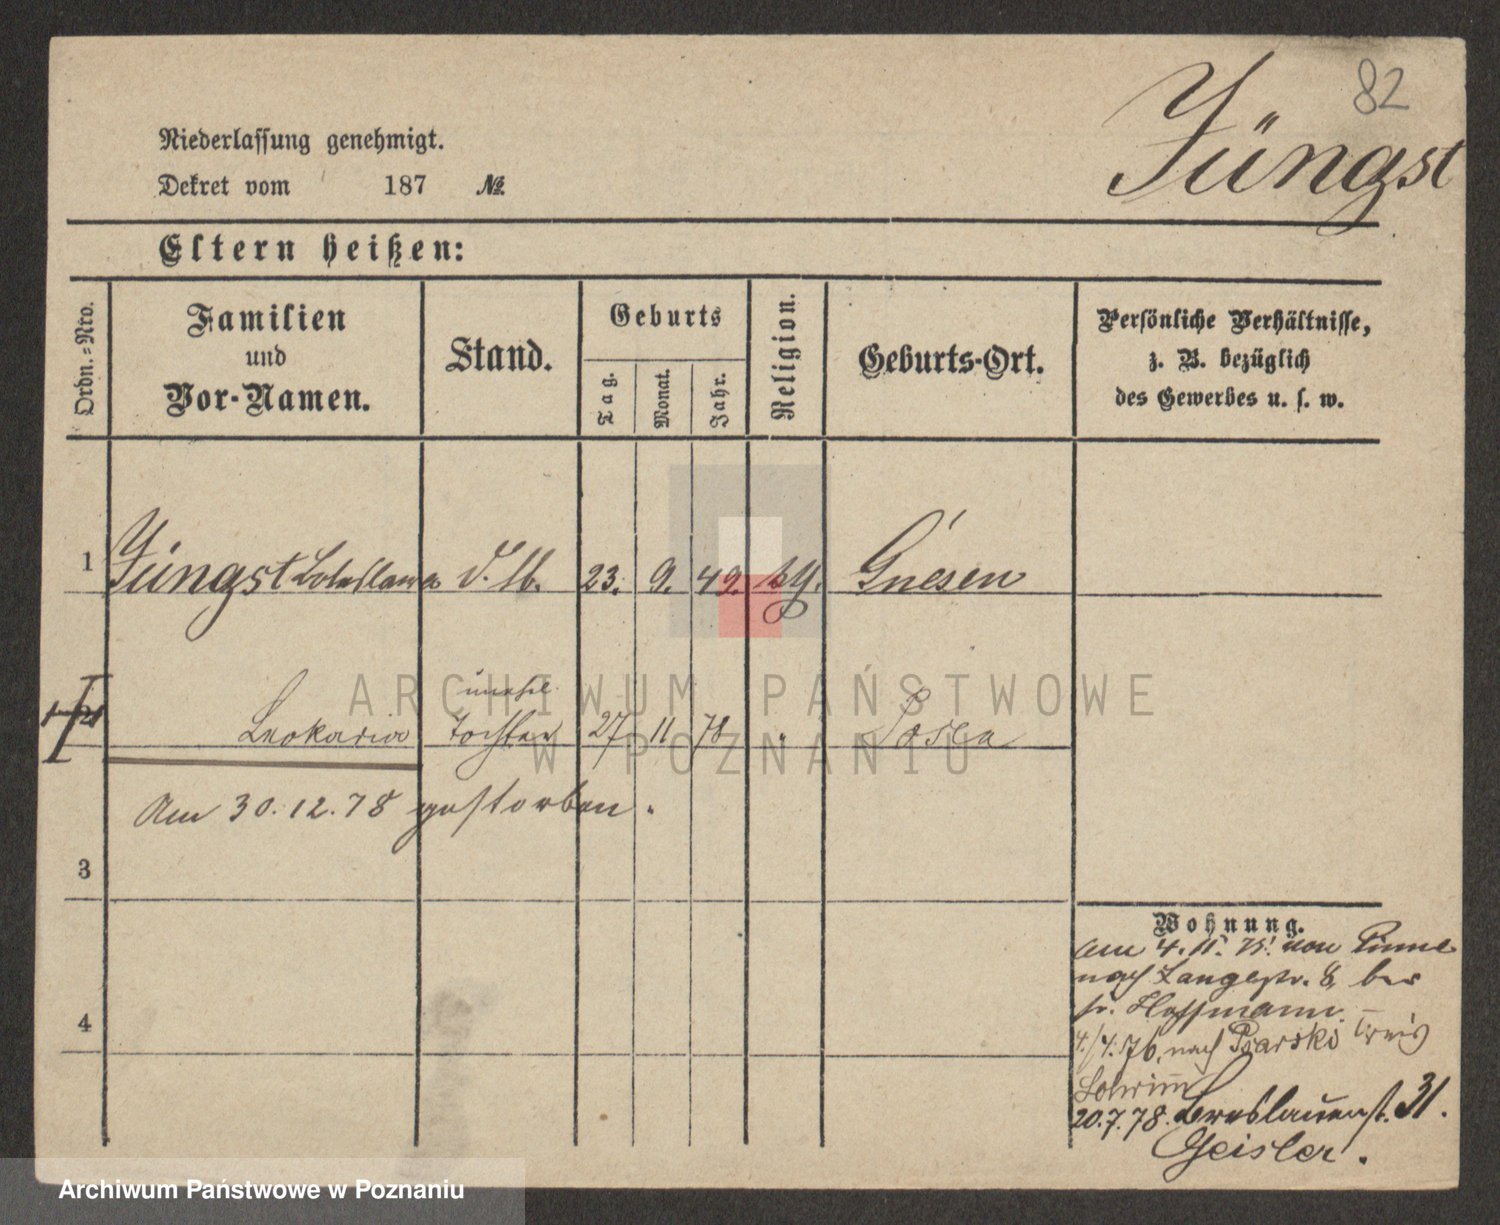 82
Jüngst
Niederlassung genehmigt.
Dekret vom 187 №
Eltern heißen:
Ordn.=Nro.
Familien
und
Vor-Namen.
Stand.
Geburts
Tag.
Monat.
Jahr.
Religion.
Geburts-Ort.
Persönliche Verhältnisse,
z. B. bezüglich
des Gewerbes u. s. w.
1 Jüngst Boleslawa 23. 9. 49. Gnesen
unehl.
Leokaria Tochter 27 11 78 " Posen
Am 30.12.78 gestorben.
3
4
Wohnung.
am 4. 11. 75. von Pinne
nach Langestr. 8, bei
fr. Hoffmann.
4./4. 76, nach Psarski Kreis
Schrimm
20.7.78. Breslauerst. 31.
Geisler.
ARCHIWUM PAŃSTWOWE
W POZNANIU
Archiwum Państwowe w Poznaniu